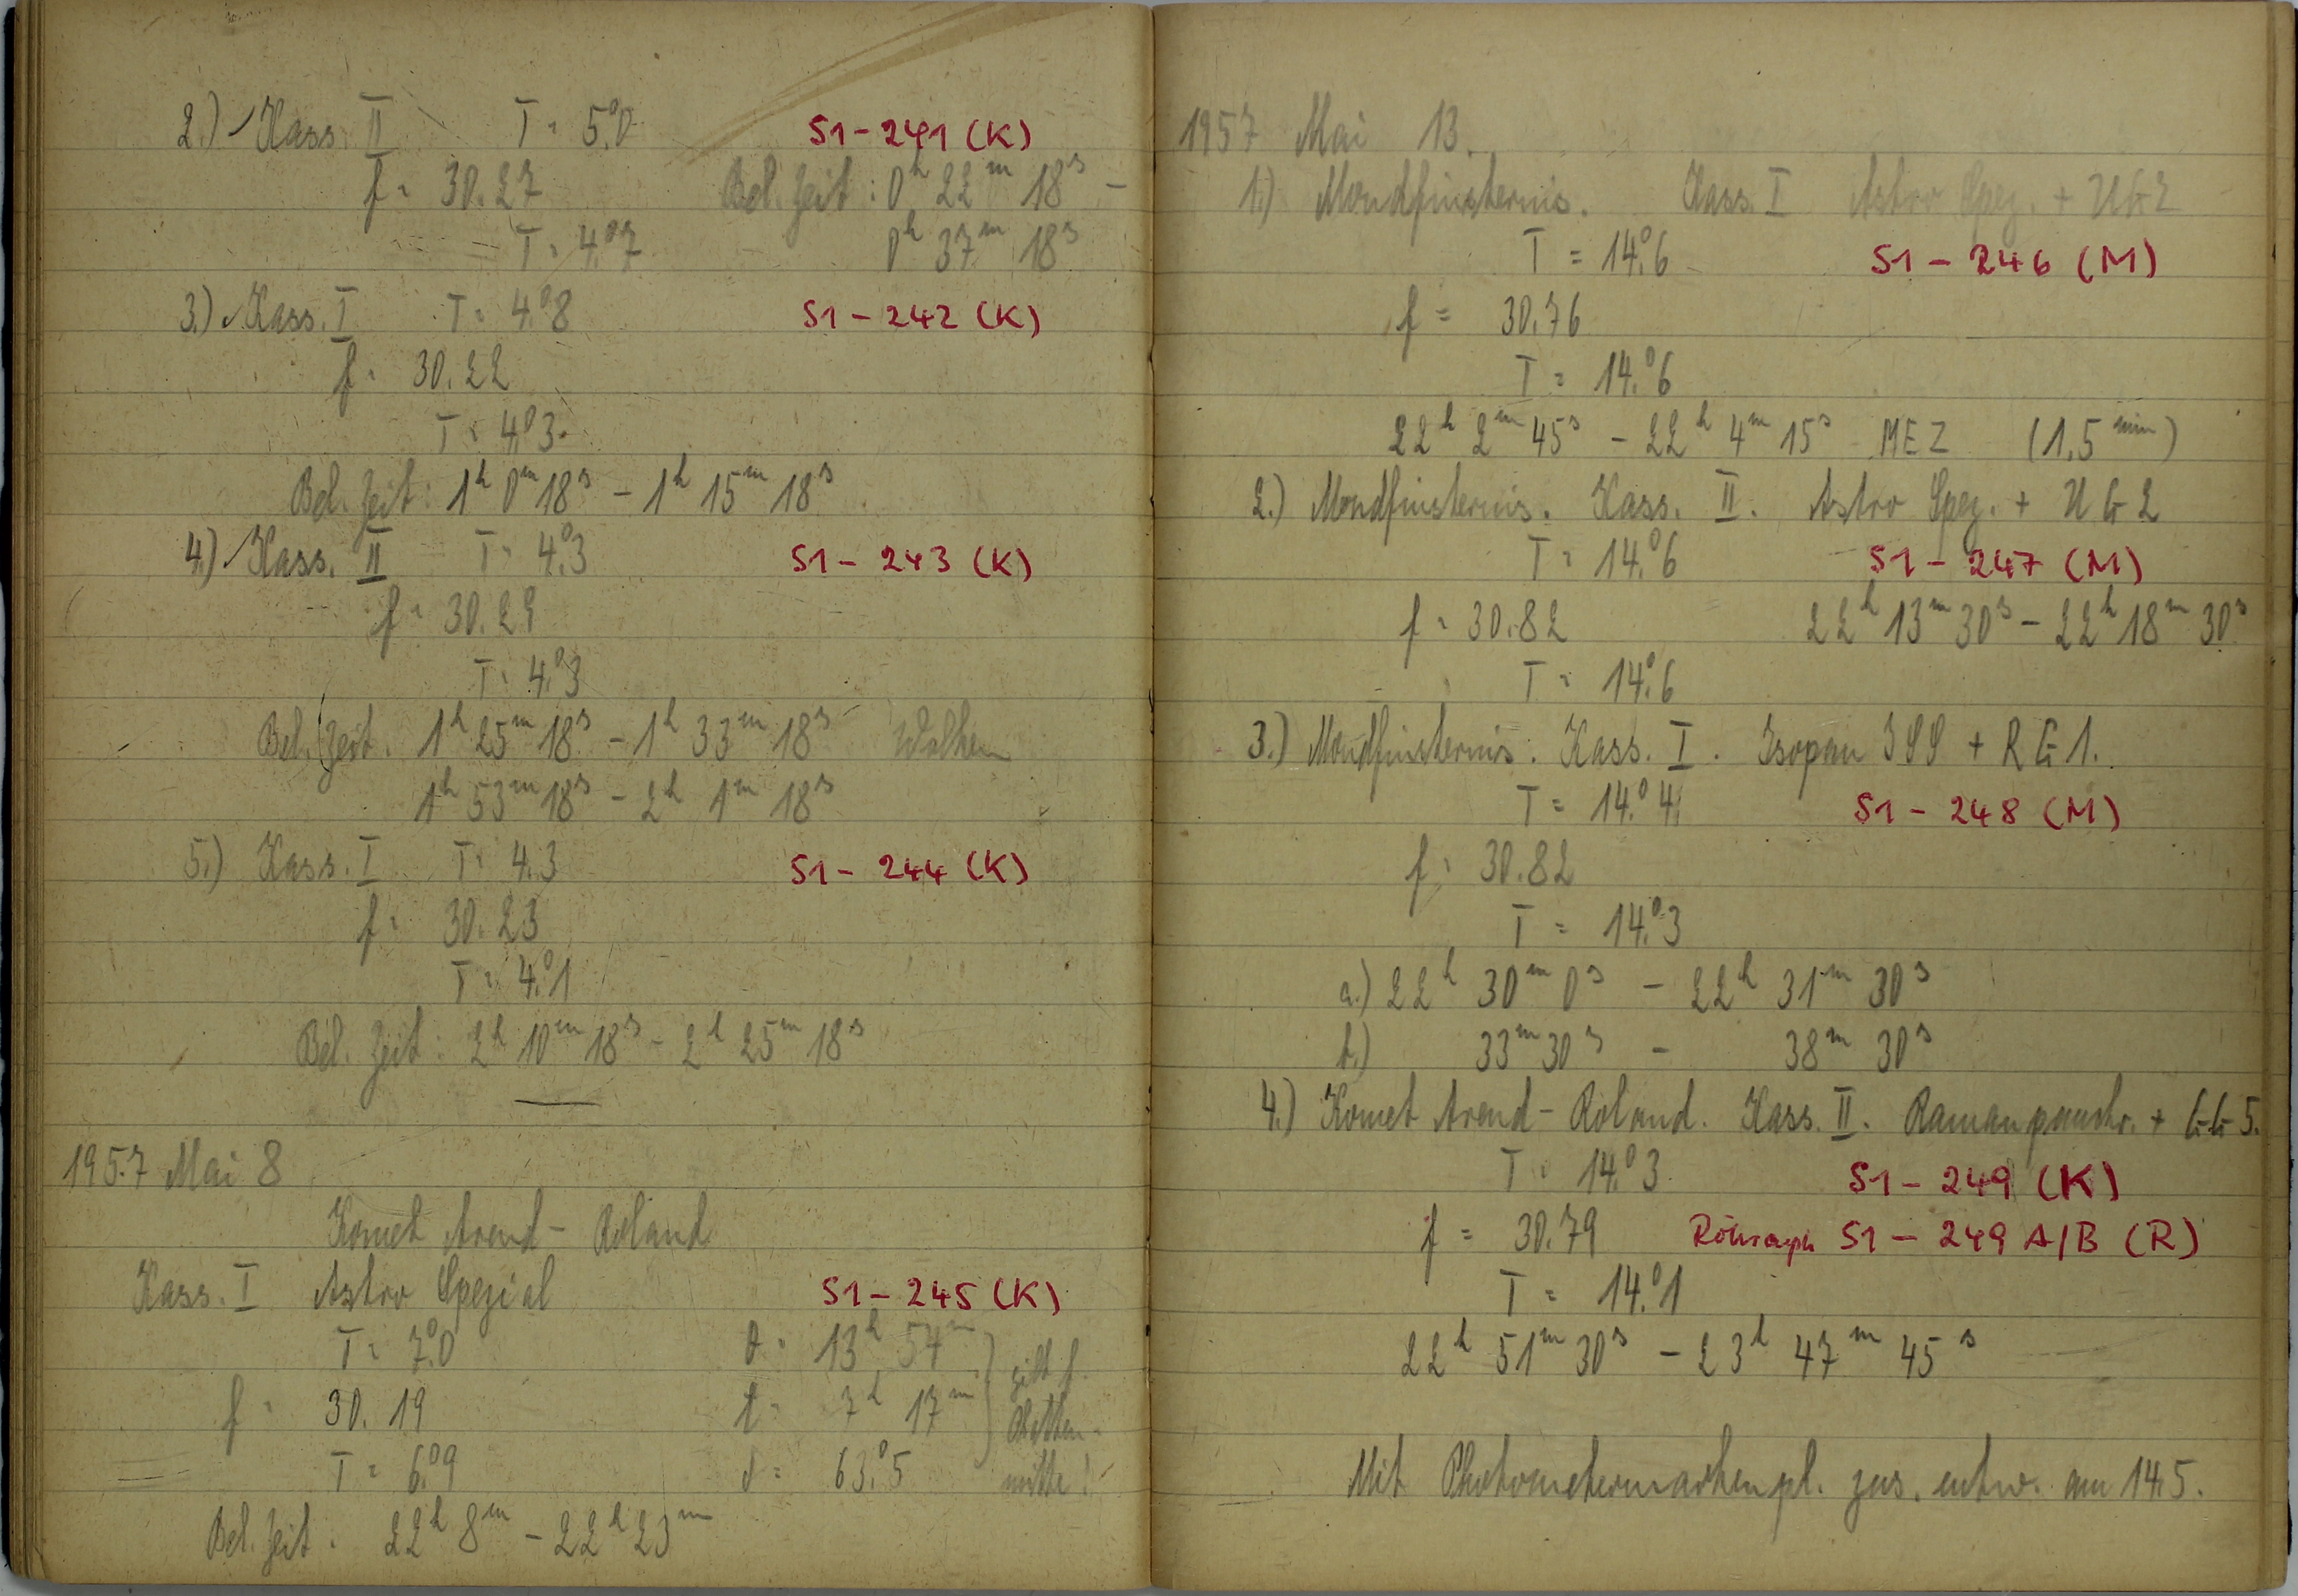 2.) Kass. II T = 5.°0 S1 - 241 (K)
f = 30.27 Bel. Zeit: 0h 22m 18s -
T = 4.°7 0h 37m 18s
3.) Kass. I T = 4.°8 S1 - 242 (K)
f = 30.22
T = 4.°3
Bel. Zeit: 1h 0m 18s - 1h 15m 18s
4.) Kass. II T = 4.°3 S1 - 243 (K)
f = 30.29
T = 4.°3
Bel. Zeit. 1h 25m 18s - 1h 33m 18s Wolken
1h 53m 18s - 2h 1m 18s
5.) Kass. I T = 4.3 S1 - 244 (K)
f = 30.23
T = 4.°1
Bel. Zeit: 2h 10m 18s - 2h 25m 18s
1957 Mai 8
Komet Arend - Roland
Kass. I Astro Spezial S1 - 245 (K)
T = 7.°0 θ = 13h 54m
f = 30.19 t = 7h 17m gilt f. Platten-
T = 6.°9 δ = 63.°5 mitte!
Bel. Zeit: 22h 8m - 22h 23m
1957 Mai 13.
1.) Mondfinsternis. Kass. I Astro Spez. + UG2
T = 14.°6 S1 - 246 (M)
f = 30.76
T = 14.°6
22h 2m 45s - 22h 4m 15s MEZ (1,5 min)
2.) Mondfinsternis. Kass. II. Astro Spez. + UG2
T = 14.°6 S1 - 247 (M)
f = 30.82 22h 13m 30s - 22h 18m 30s
T = 14.°6
3.) Mondfinsternis. Kass. I. Isopan ISS + RG1.
T = 14.°4 S1 - 248 (M)
f = 30.82
T = 14.°3
a.) 22h 30m 0s - 22h 31m 30s
b.) 33m 30s - 38m 30s
4.) Komet Arend - Roland. Kass. II. Ramanpanchr. + GG5.
T = 14.°3 S1 - 249 (K)
f = 30.79 S1 - 249 A/B (R)
T = 14.°1
22h 51m 30s - 23h 47m 45s
Mit Photometermarkenpl. zus. entw. am 14.5.